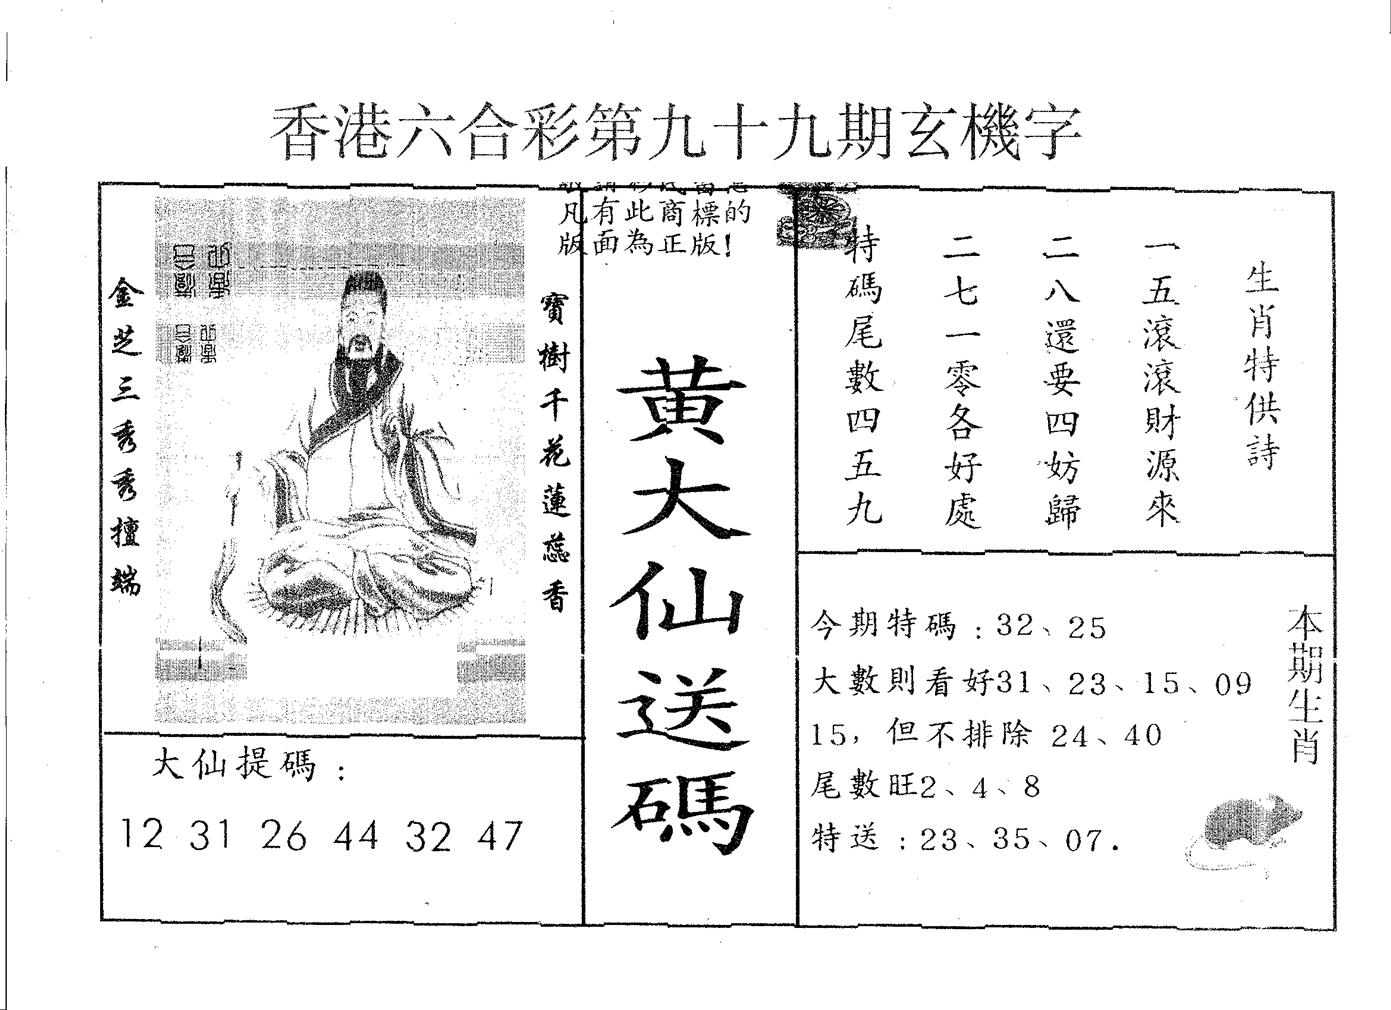 香港六合彩第九十九期玄機字
凡有此商標的
版面為正版!
生肖特供詩
一五滾滾財源來
二八還要四妨歸
二七一零各好處
特碼尾數四五九
寶樹千花蓮蕊香
金芝三秀秀擅端
黃大仙送碼
大仙提碼：
12 31 26 44 32 47
本期生肖
今期特碼：32、25
大數則看好31、23、15、09
15，但不排除 24、40
尾數旺2、4、8
特送：23、35、07.